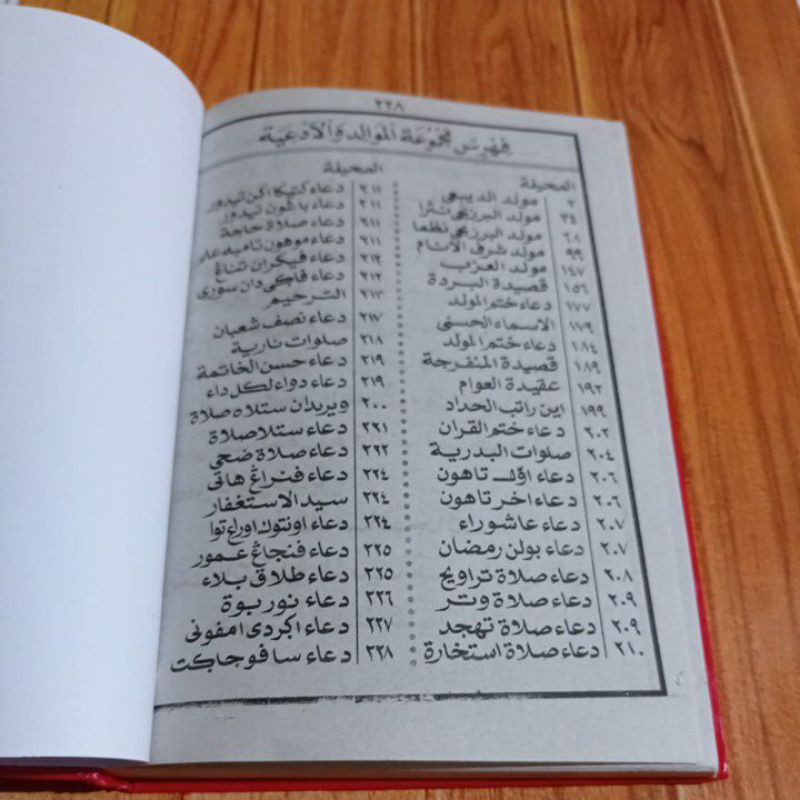 ٢٢٨
فهرس مجموعة الموالد والأدعية
الصحيفة
٢ مولد الديبعي
٣٤ مولد البرزنجي نثرا
٦٨ مولد البرزنجي نظما
٩٩ مولد شرف الأنام
١٤٧ مولد العزب
١٥٦ قصيدة البردة
١٧٧ دعاء ختم المولد
١٧٩ الاسماء الحسنى
١٨٤ دعاء ختم المولد
١٨٩ قصيدة المنفرجة
١٩٢ عقيدة العوام
١٩٩ اين راتب الحداد
٢٠٢ دعاء ختم القران
٢٠٤ صلوات البدرية
٢٠٦ دعاء اوّل تاهون
٢٠٦ دعاء اخر تاهون
٢٠٧ دعاء عاشوراء
٢٠٧ دعاء بولن رمضان
٢٠٨ دعاء صلاة تراويح
٢٠٩ دعاء صلاة وتر
٢٠٩ دعاء صلاة تهجد
٢١٠ دعاء صلاة استخارة
الصحيفة
٢١١ دعاء كتيك اكن تيدور
٢١١ دعاء باڠون تيدور
٢١١ دعاء صلاة حاجة
٢١١ دعاء موهون تامبه علم
٢١٢ دعاء فيكران تناڠ
٢١٢ دعاء فاكي دان سوري
٢١٣ الترحيم
٢١٧ دعاء نصف شعبان
٢١٨ صلوات نارية
٢١٩ دعاء حسن الخاتمة
٢١٩ دعاء دواء لكل داء
٢٠٠ ويريدان ستلاه صلاة
٢٢١ دعاء ستلا صلاة
٢٢٢ دعاء صلاة ضحى
٢٢٤ دعاء فنراڠ هاتى
٢٢٤ سيد الاستغفار
٢٢٤ دعاء اونتوك اورڠ توا
٢٢٥ دعاء فنجاڠ عمور
٢٢٥ دعاء طلاق بلاء
٢٢٦ دعاء نور بوة
٢٢٧ دعاء اكردى امفونى
٢٢٨ دعاء سافوجاكت